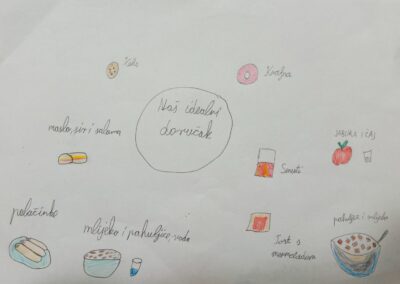 Keks
Krafna
Naš idealni
doručak
maslo, sir i salama
JABUKA I ČAJ
Smuti
palačinke
mlijeko i pahuljice, voda
pahuljice i mlijeko
Tost s
marmeladom